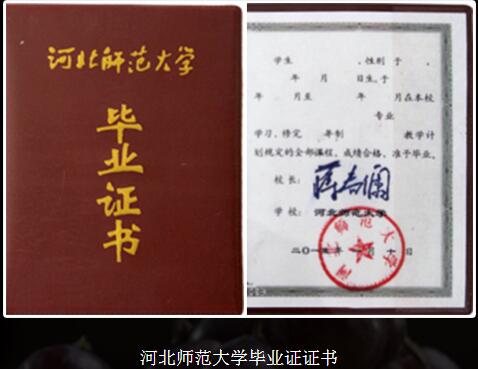 河北师范大学
毕业证书
学生 ，性别 于
年 月 日生，于
年 月至 年 月在本校
专业
学习，修完 年制 教学计
划规定的全部课程，成绩合格，准予毕业。
校长：
学校：河北师范大学
河北师范大学
二〇一 年 月 十 日
河北师范大学毕业证证书